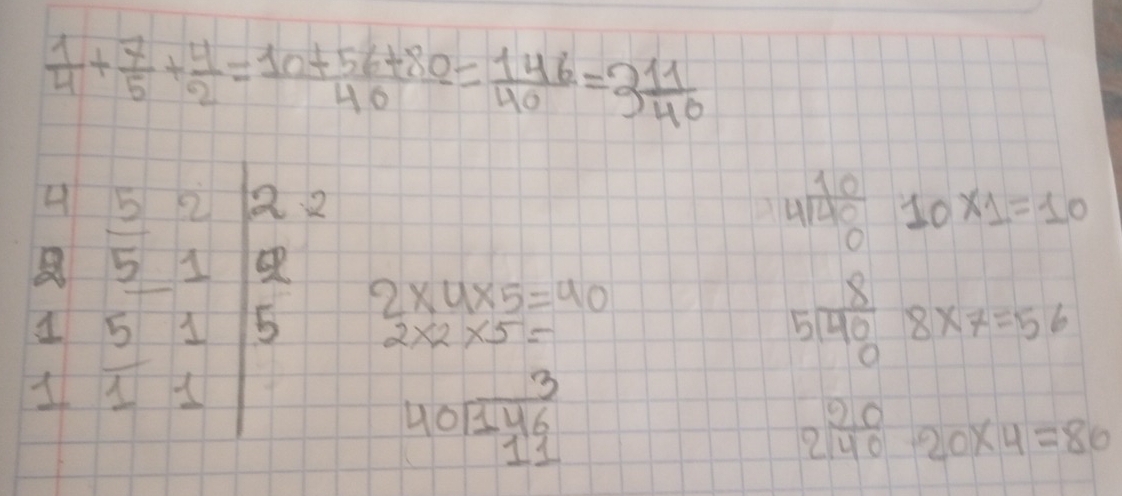 1/4 + 7/5 + 4/2 = 10+56+80/40 = 146/40 = 3 11/40
4 5 2 | 2 2
2 5 1 | 2
1 5 1 | 5
1 1 1
2×4×5=40
2×2×5=
3
40 146
11
10
4 40 10×1=10
0
8
5 40 8×7=56
0
20
2 40 20×4=80